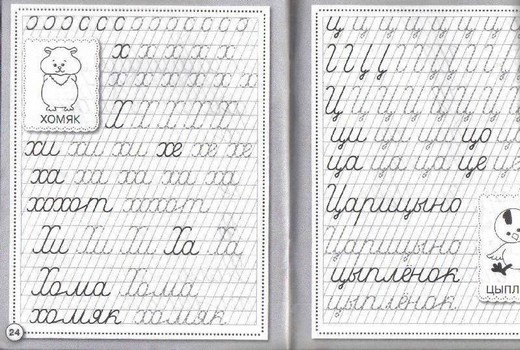 Э Э Э Э Э С С С С С С С С
х х х х х х
х х х х х х
ХОМЯК
Х Х Х Х Х Х
хи хи хи хе хе хе
ха ха ха ха ха
хохот хохот
Хи Хи Хи Ха Ха
Хома Хома
хомяк хомяк
24
ц ц ц ц ц ц ц ц
Ц Ц Ц Ц Ц Ц Ц
ци ци ци цо ц
ца ца ца це це
Царицыно
Царицыно
цыплёнок
цыплёнок
ЦЫПЛ